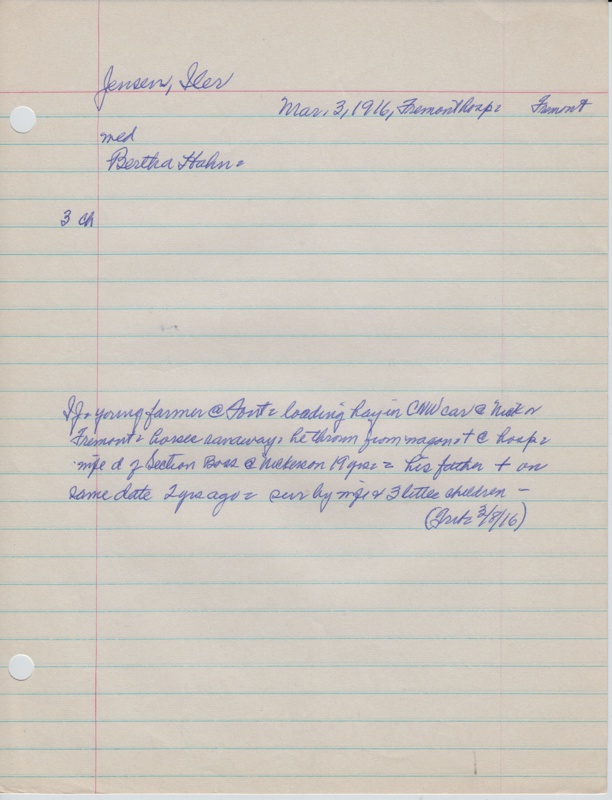 Jensen, Iler
Mar. 3, 1916, Fremont hosp = Fremont
med
Bertha Hahn =
3 ch
I J = young farmer @ Font = loading hay in CNW car @ Nick n
Fremont = horses runaway = he thrown from wagon = + @ hosp =
wife d of Section Boss @ Nickerson 19 yrs = = his father + on
same date 2 yrs ago = sur by wife & 3 little children –
(Trib 3/8/16)